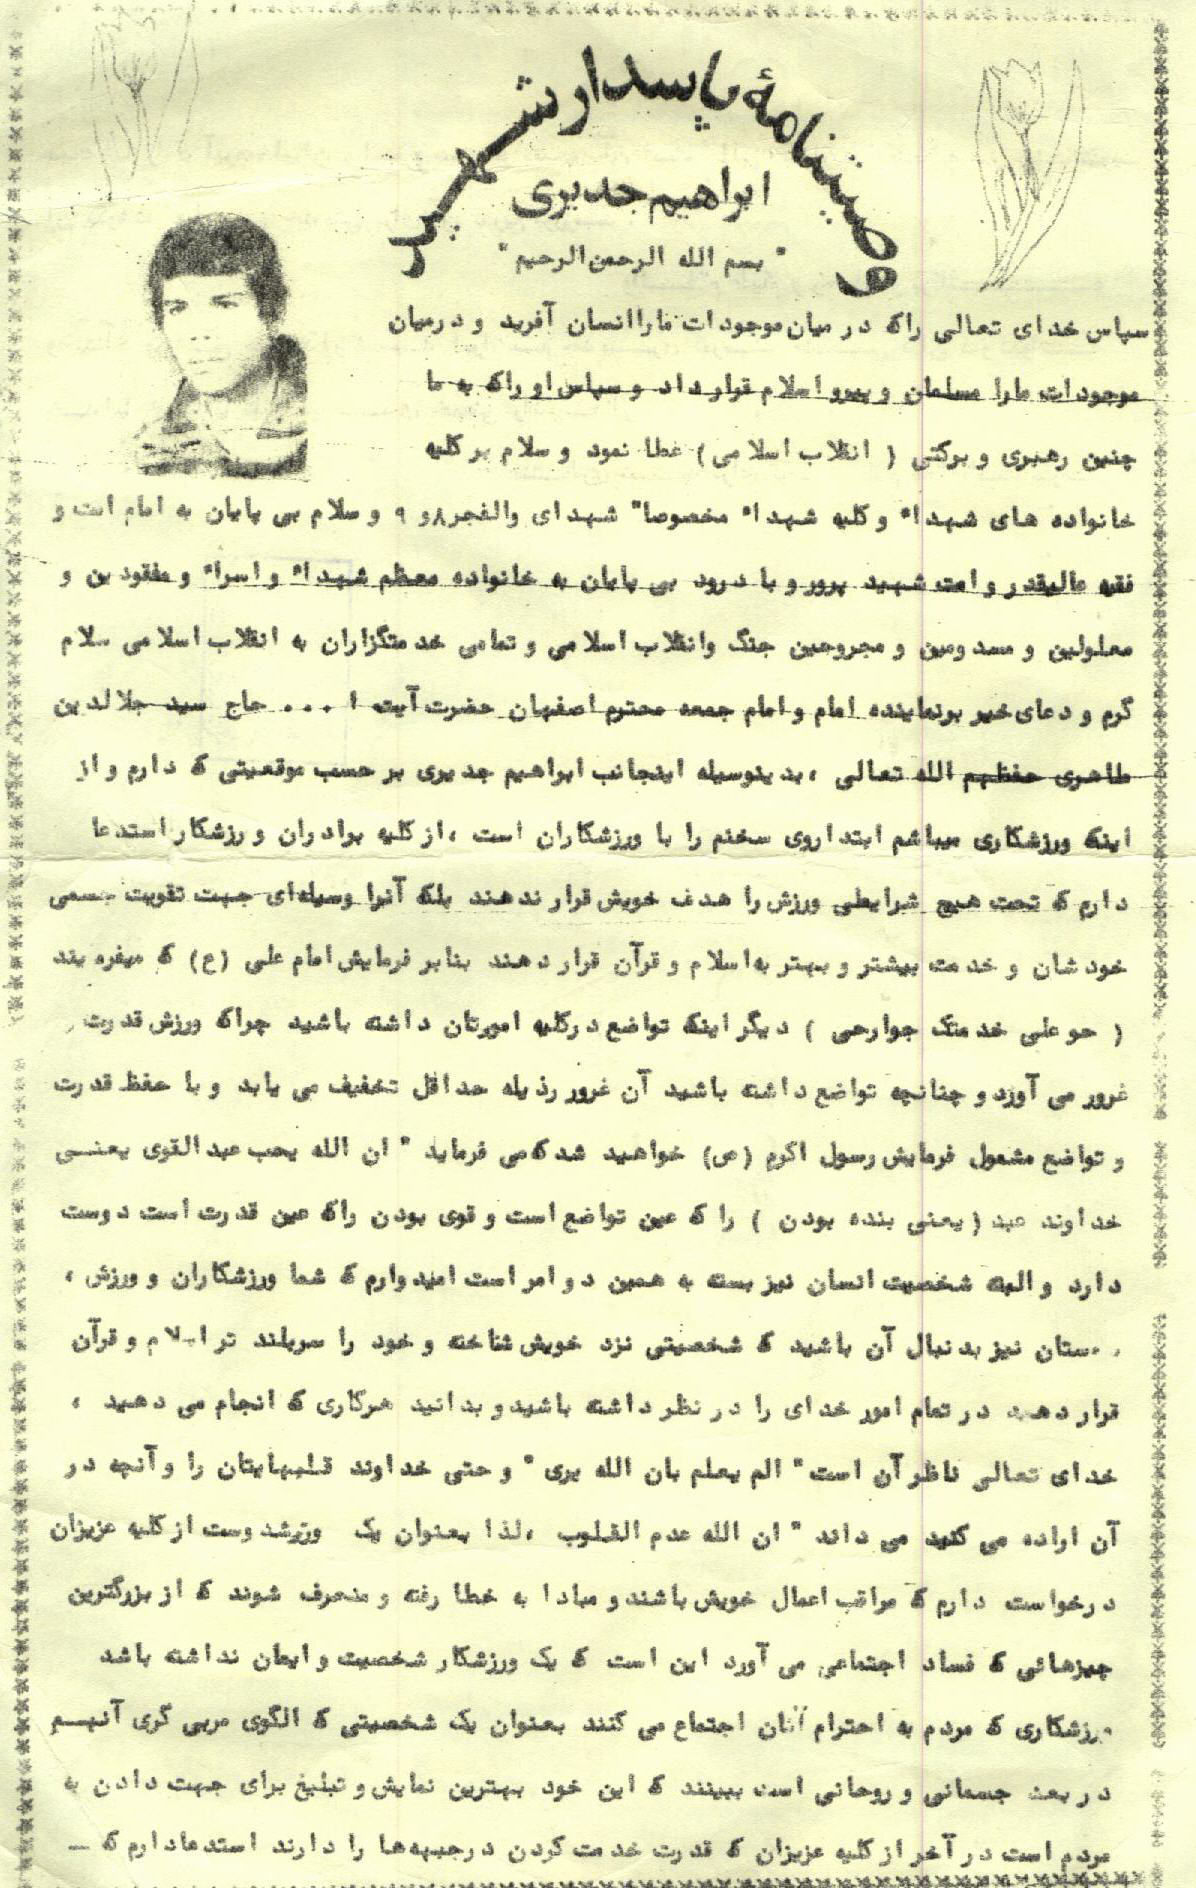 وصیتنامهٔ پاسدار شهید
ابراهیم جدیری
" بسم الله الرحمن الرحیم "
سپاس خدای تعالی راکه در میان موجودات ماراانسان آفرید و درمیان
موجودات مارا مسلمان و پیرو اسلام قرار داد و سپاس او راکه به ما
چنین رهبری و برکتی ( انقلاب اسلامی ) عطا نمود و سلام بر کلیه
خانواده های شهداء و کلیه شهداء مخصوصا" شهدای والفجر۸و ۹ و سلام بی پایان به امام امت و
فقیه عالیقدر و امت شهید پرور و با درود بی پایان به خانواده معظم شهداء و اسراء و مفقودین و
معلولین و مصدومین و مجروحین جنگ وانقلاب اسلامی و تمامی خدمتگزاران به انقلاب اسلامی سلام
گرم و دعای خیر برنماینده امام و امام جمعه محترم اصفهان حضرت آیت ا ... حاج سید جلالدین
طاهری حفظهم الله تعالی ، بدینوسیله اینجانب ابراهیم جدیری بر حسب موقعیتی که دارم و از
اینکه ورزشکاری میباشم ابتدا روی سخنم را با ورزشکاران است ، از کلیه برادران ورزشکار استدعا
دارم که تحت هیچ شرایطی ورزش را هدف خویش قرار ندهند بلکه آنرا وسیله‌ای جهت تقویت جسمی
خودشان و خدمت بیشتر و بهتر به اسلام و قرآن قرار دهند بنابر فرمایش امام علی (ع) که میفرمایند
( حو علی خدمتک جوارحی ) دیگر اینکه تواضع درکلیه امورتان داشته باشید چراکه ورزش قدرت
غرور می آورد و چنانچه تواضع داشته باشید آن غرور رذیله حداقل تخفیف می یابد و با حفظ قدرت
و تواضع مشمول فرمایش رسول اکرم (ص) خواهید شد که می فرماید " ان الله یحب عبد القوی یعنی
خداوند عبد ( یعنی بنده بودن ) را که عین تواضع است و قوی بودن راکه عین قدرت است دوست
دارد و البته شخصیت انسان نیز بسته به همین دو امر است امیدوارم که شما ورزشکاران و ورزش ،
دوستان نیز بدنبال آن باشید که شخصیتی نزد خویش شناخته و خود را سربلند تر اسلام و قرآن
قرار دهید در تمام امور خدای را در نظر داشته باشید و بدانید هرکاری که انجام می دهید ،
خدای تعالی ناظر آن است " الم یعلم بان الله یری " و حتی خداوند قلبهایتان را و آنچه در
آن اراده می کنید می داند " ان الله عدم القلوب ، لذا بعنوان یک ورزشدوست از کلیه عزیزان
درخواست دارم که مراقب اعمال خویش باشند و مبادا به خطا رفته و منحرف شوند که از بزرگترین
چیزهائی که فساد اجتماعی می آورد این است که یک ورزشکار شخصیت و ایمان نداشته باشد
ورزشکاری که مردم به احترام آنان اجتماع می کنند بعنوان یک شخصیتی که الگوی مربی گری آنهم
در بعد جسمانی و روحانی است ببینند که این خود بهترین نمایش و تبلیغ برای جهت دادن به
مردم است در آخر از کلیه عزیزان که قدرت خدمت کردن درجبهه‌ها را دارند استدعادارم که _